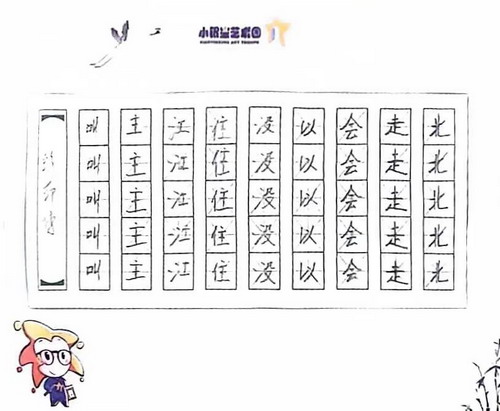 小银星艺术团
北北北北北
走走走走走
会会会会会
以以以以以
没没没没没
住住住住住
江江江江江
主主主主主
叫叫叫叫叫